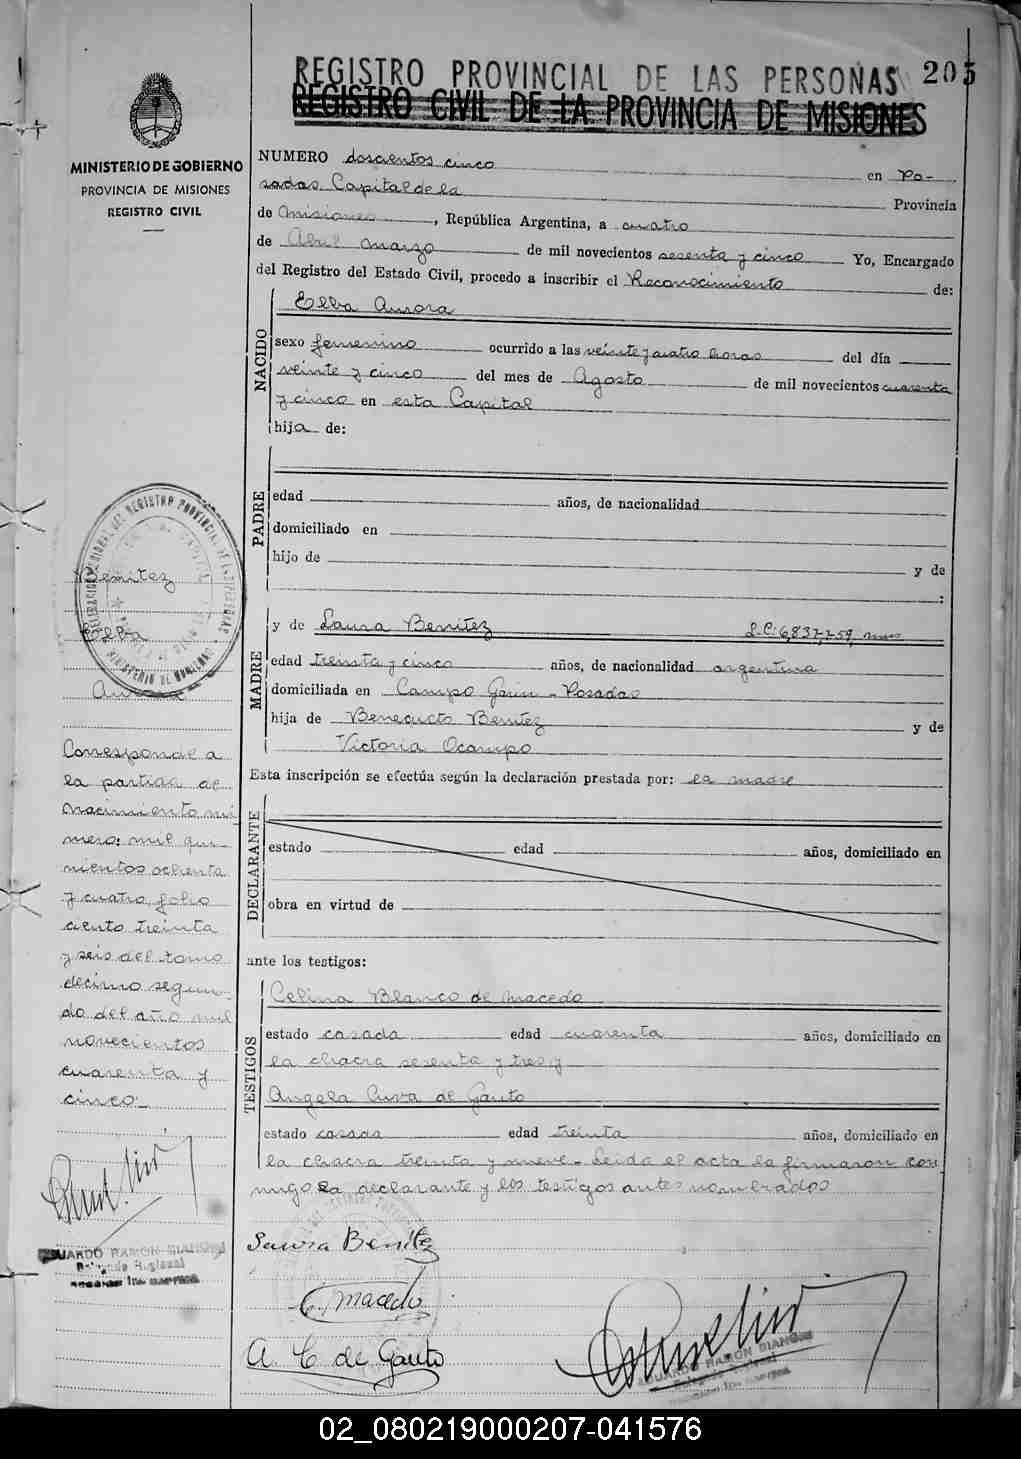 REGISTRO PROVINCIAL DE LAS PERSONAS 205
REGISTRO CIVIL DE LA PROVINCIA DE MISIONES
MINISTERIO DE GOBIERNO
PROVINCIA DE MISIONES
REGISTRO CIVIL
NUMERO doscientos cinco en Po-
sadas Capital de la Provincia
de Misiones, República Argentina, a cuatro
de Abril marzo de mil novecientos sesenta y cinco Yo, Encargado
del Registro del Estado Civil, procedo a inscribir el Reconocimiento de:
NACIDO
Elba Aurora
sexo femenino ocurrido a las veinte y cuatro horas del día
veinte y cinco del mes de Agosto de mil novecientos cuarenta
y cinco en esta Capital
hija de:
PADRE
edad años, de nacionalidad
domiciliado en
hijo de y de
:
MADRE
y de Laura Benitez L.C: 6,837,259,
edad treinta y cinco años, de nacionalidad argentina
domiciliada en Campo Posadas
hija de Benedicto Benitez y de
Victoria Ocampo
Esta inscripción se efectúa según la declaración prestada por: la madre
DECLARANTE
estado edad años, domiciliado en
obra en virtud de
ante los testigos:
TESTIGOS
Celina Blanco de Macedo
estado casada edad cuarenta años, domiciliado en
la chacra sesenta y tres y
Angela Cuva de Gauto
estado casada edad treinta años, domiciliado en
la chacra treinta y nueve - Leida el acta la firmaron con
migo la declarante y los testigos antes nombrados
Laura Benítez
C. Macedo
A. C de Gauto
EDUARDO RAMON BIANCHI
Delegado Regional
Benitez
Elba
Aurora
Corresponde a
la partida de
nacimiento nú
mero: mil qui
nientos ochenta
y cuatro, folio
ciento treinta
y seis del tomo
décimo segun-
do del año mil
novecientos
cuarenta y
cinco.-
EDUARDO RAMON BIANCHI
Delegado Regional
02_080219000207-041576